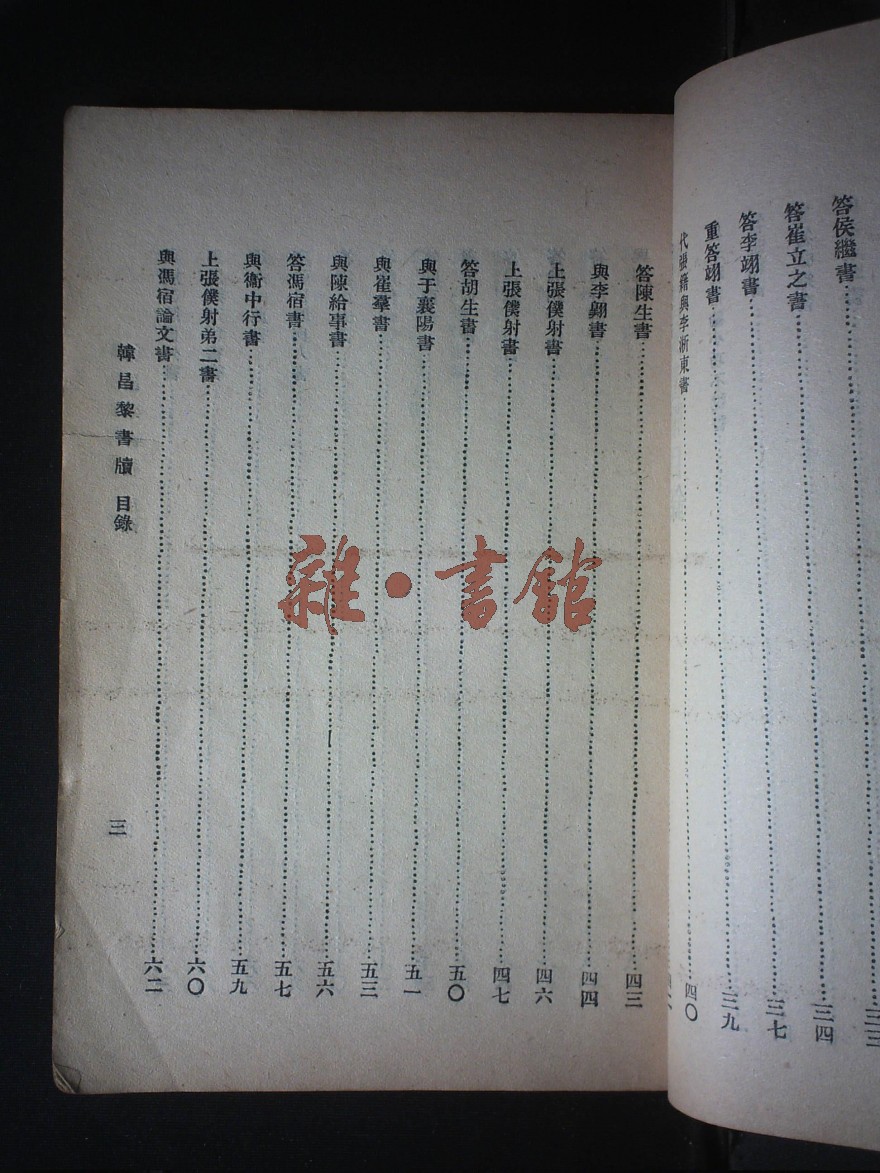 答侯繼書……三三
答崔立之書……三四
答李翊書……三七
重答翊書……三九
代張籍與李浙東書……四〇
答陳生書……四三
與李翺書……四四
上張僕射書……四六
上張僕射書……四七
答胡生書……五〇
與于襄陽書……五一
與崔羣書……五三
與陳給事書……五六
答馮宿書……五七
與衞中行書……五九
上張僕射弟二書……六〇
與馮宿論文書……六二
韓昌黎書牘 目錄
三
雜·書館